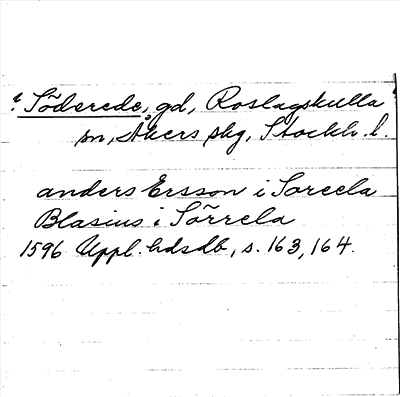 t. Söderede, gd, Roslagskulla
sn, Åkers skg, Stockh. l.
anders Ersson i Soreela
Blasius i Sörrela
1596 Uppl. hdsdb, s. 163, 164.